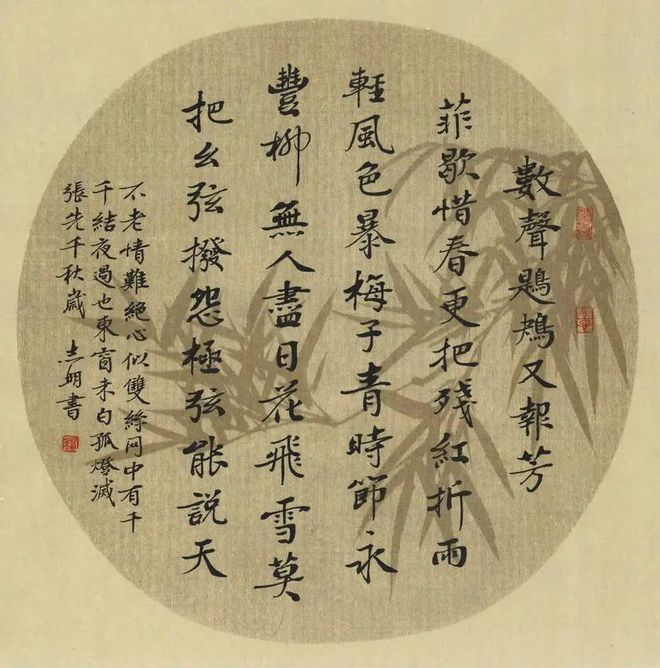 數聲鶗鴂又報芳
菲歇惜春更把殘紅折雨
輕風色暴梅子青時節永
豐柳無人盡日花飛雪莫
把幺弦撥怨極弦能說天
不老情難絕心似雙絲网中有千
千結夜過也東窗未白孤燈滅
張先千秋歲 志明書